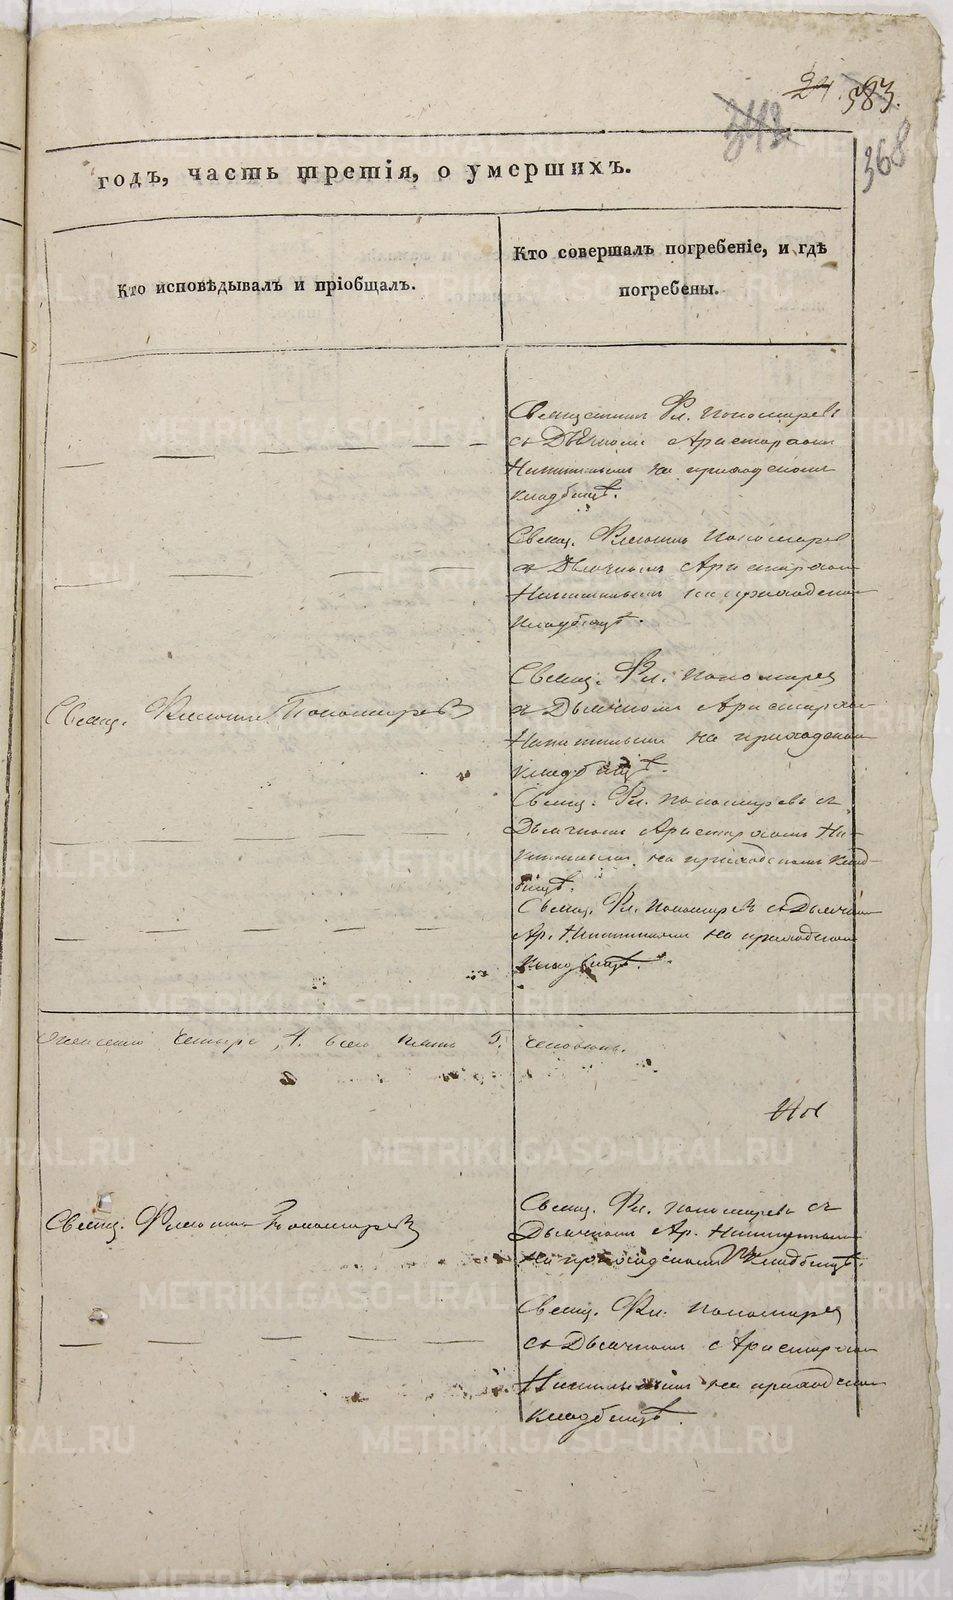 24. 383.
343.
368
годъ, часть третія, о умершихъ.
Кто исповѣдывалъ и пріобщалъ.
Кто совершалъ погребеніе, и гдѣ
погребены.
Священникъ Фл. Пономаревъ
съ Дьячкомъ Аристархомъ
на приходскомъ
кладбищѣ.
Свящ. Пономаревъ
съ Дьячкомъ Аристархомъ
на приходскомъ
кладбищѣ.
Свящ. Пономаревъ
Свящ. Фл. Пономаревъ
съ Дьячкомъ Аристархомъ
на приходскомъ
кладбищѣ.
Свящ. Фл. Пономаревъ съ
Дьячкомъ Аристархомъ
на приходскомъ клад-
бищѣ.
Свящ. Фл. Пономаревъ съ Дьячкомъ
Ар. на приходскомъ
кладбищѣ.
женскаго четыре, 4. всего пять 5. человѣкъ.
Свящ. Пономаревъ
Свящ. Фл. Пономаревъ съ
Дьячкомъ Ар.
на приходскомъ кладбищѣ.
Свящ. Фл. Пономаревъ
съ Дьячкомъ Аристархомъ
на приходскомъ
кладбищѣ.
METRIKI.GASO-URAL.RU